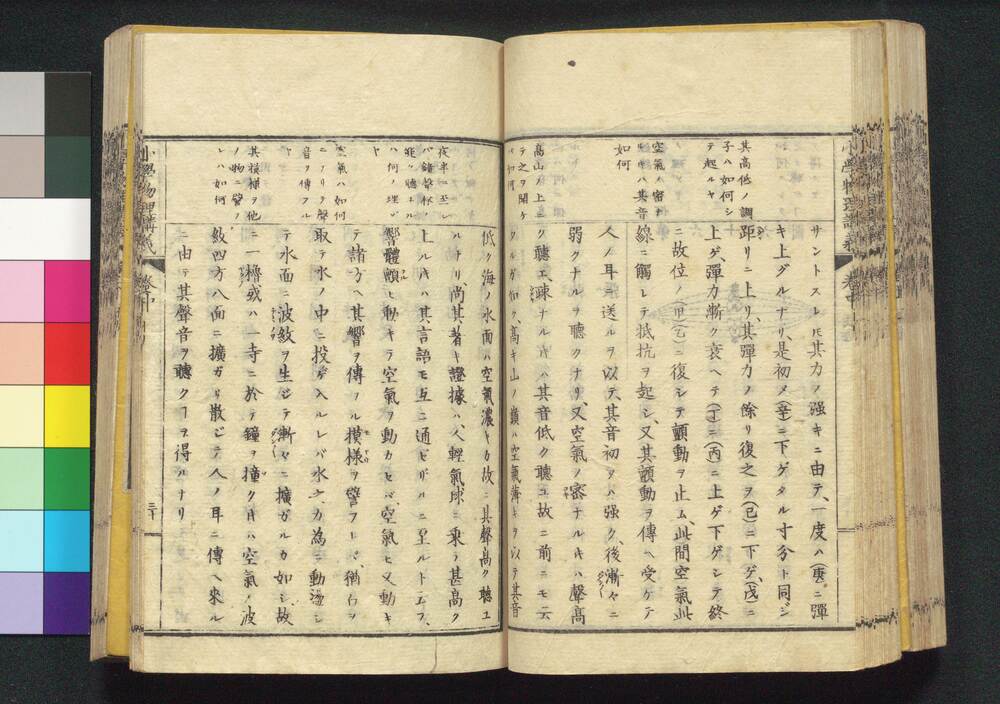 サントスレ𪜈其力ノ强キニ由テ、一度ハ(庚)ニ彈
キ上グルナリ、是初メ(辛)ニ下ゲタル寸分ト同ジ
距リニ上リ、其彈力ノ餘リ復之ヲ(己)ニ下ゲ、(戊)ニ
上ゲ、彈力漸ク衰ヘテ(丁)ニ(丙)ニ上ゲ下ゲシテ終
ニ故位ノ(甲乙)ニ復シテ顫動ヲ止ム、此間空氣此
線ニ觸レテ抵抗ヲ起シ、又其顫動ヲ傳ヘ受ケテ
人ノ耳ニ送ルヲ以テ、其音初メハ强ク、後漸々ニ
弱クナルヲ聽クナリ、又空氣ノ密ナル𪜈ハ聲高
ク聽エ、疎ナル𪜈ハ其音低ク聽ユ故ニ前ニモ云
フルガ如ク、高キ山ノ巓ハ空氣薄キヲ以テ其音
其高低ノ調
子ハ如何シ
テ起ルヤ
空氣ノ密ナ
ル𪜈ハ其音
如何
高山ノ上ニ
テ之ヲ聞ケ
バ如何
低ク海ノ水面ハ空氣濃キカ故ニ其聲高ク聽ユ
ルナリ、尚其著キ證據ハ、人輕氣球ニ乘テ甚高ク
上ル𪜈ハ其言語モ互ニ通ゼザルニ至ルト云フ、
響體顫ヒ動キテ空氣ヲ動カセバ空氣モ又動キ
テ諸方ヘ其響ヲ傳フル摸樣ヲ譬フレバ、猶石ヲ
取テ水ノ中ニ投ゲ入ルレバ水之カ為ニ動盪シ
テ水面ニ波紋ヲ生ジテ漸々ニ擴ガルカ如シ故
ニ一樓或ハ一寺ニ於テ鐘ヲ撞ク𪜈ハ空氣ノ波
紋四方八面ニ擴ガリ散ジテ人ノ耳ニ傳ヘ來ル
ニ由テ其聲音ヲ聽クヿヲ得ルナリ
夜半ニ至レ
バ鐘聲杯ノ
能ク聽ユル
ハ何ノ理ゾ
ヤ
空氣ハ如何
ニアリテ聲
音ヲ傳フル
ヤ
其摸樣ヲ他
ノ物ニ譬フ
レハ如何
小學物理講義
卷中
三十